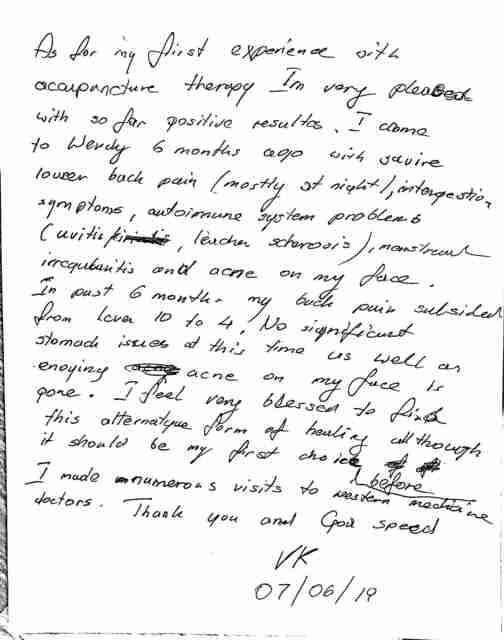 As for my first experience with
accupuncture therapy Im very pleased
with so far positive results. I came
to Wendy 6 months ago with savire
lower back pain (mostly at night), intergestion
symptoms, autoimune system problems
(uvitis, leachen scherosis), menstrual
irregularitis and acne on my face.
In past 6 months my back pain subsided
from lever 10 to 4, No significant
stomach issues at this time us well as
enoying acne on my face is
gone. I feel very blessed to find
this alternatyve form of healing allthough
it should be my first choice
before
I made numerous visits to western medicine
doctors. Thank you and God speed
VK
07/06/19